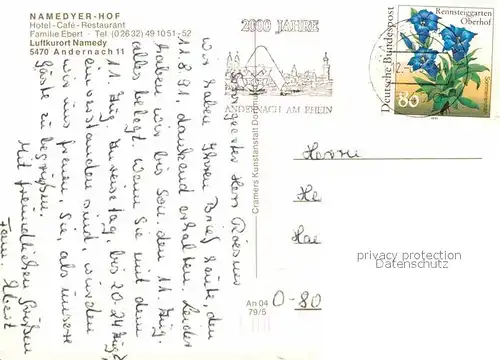 NAMEDYER-HOF
Hotel-Café-Restaurant
Familie Ebert · Tel. (02632) 491051-52
Luftkurort Namedy
5470 Andernach 11
Sehr geehrter Herr
wir haben Ihren Brief heute, den
11.8.91, dankend erhalten. Leider
haben wir bis Son. den 11. Aug.
alles belegt. Wenn Sie mit dem
11. Aug. Anreisetag, bis 20-24 Aug.
einverstanden sind, würden
wir uns freuen, Sie, als unsere
Gäste zu begrüßen.
Mit freundlichen Grüßen
Fam. Ebert
Cramers Kunstanstalt Dortmund
An 04
79/5
2000 JAHRE
ANDERNACH AM RHEIN
12.
Deutsche Bundespost
Rennsteiggarten
Oberhof
80
Herrn
He
Hai
O-80
privacy protection
Datenschutz